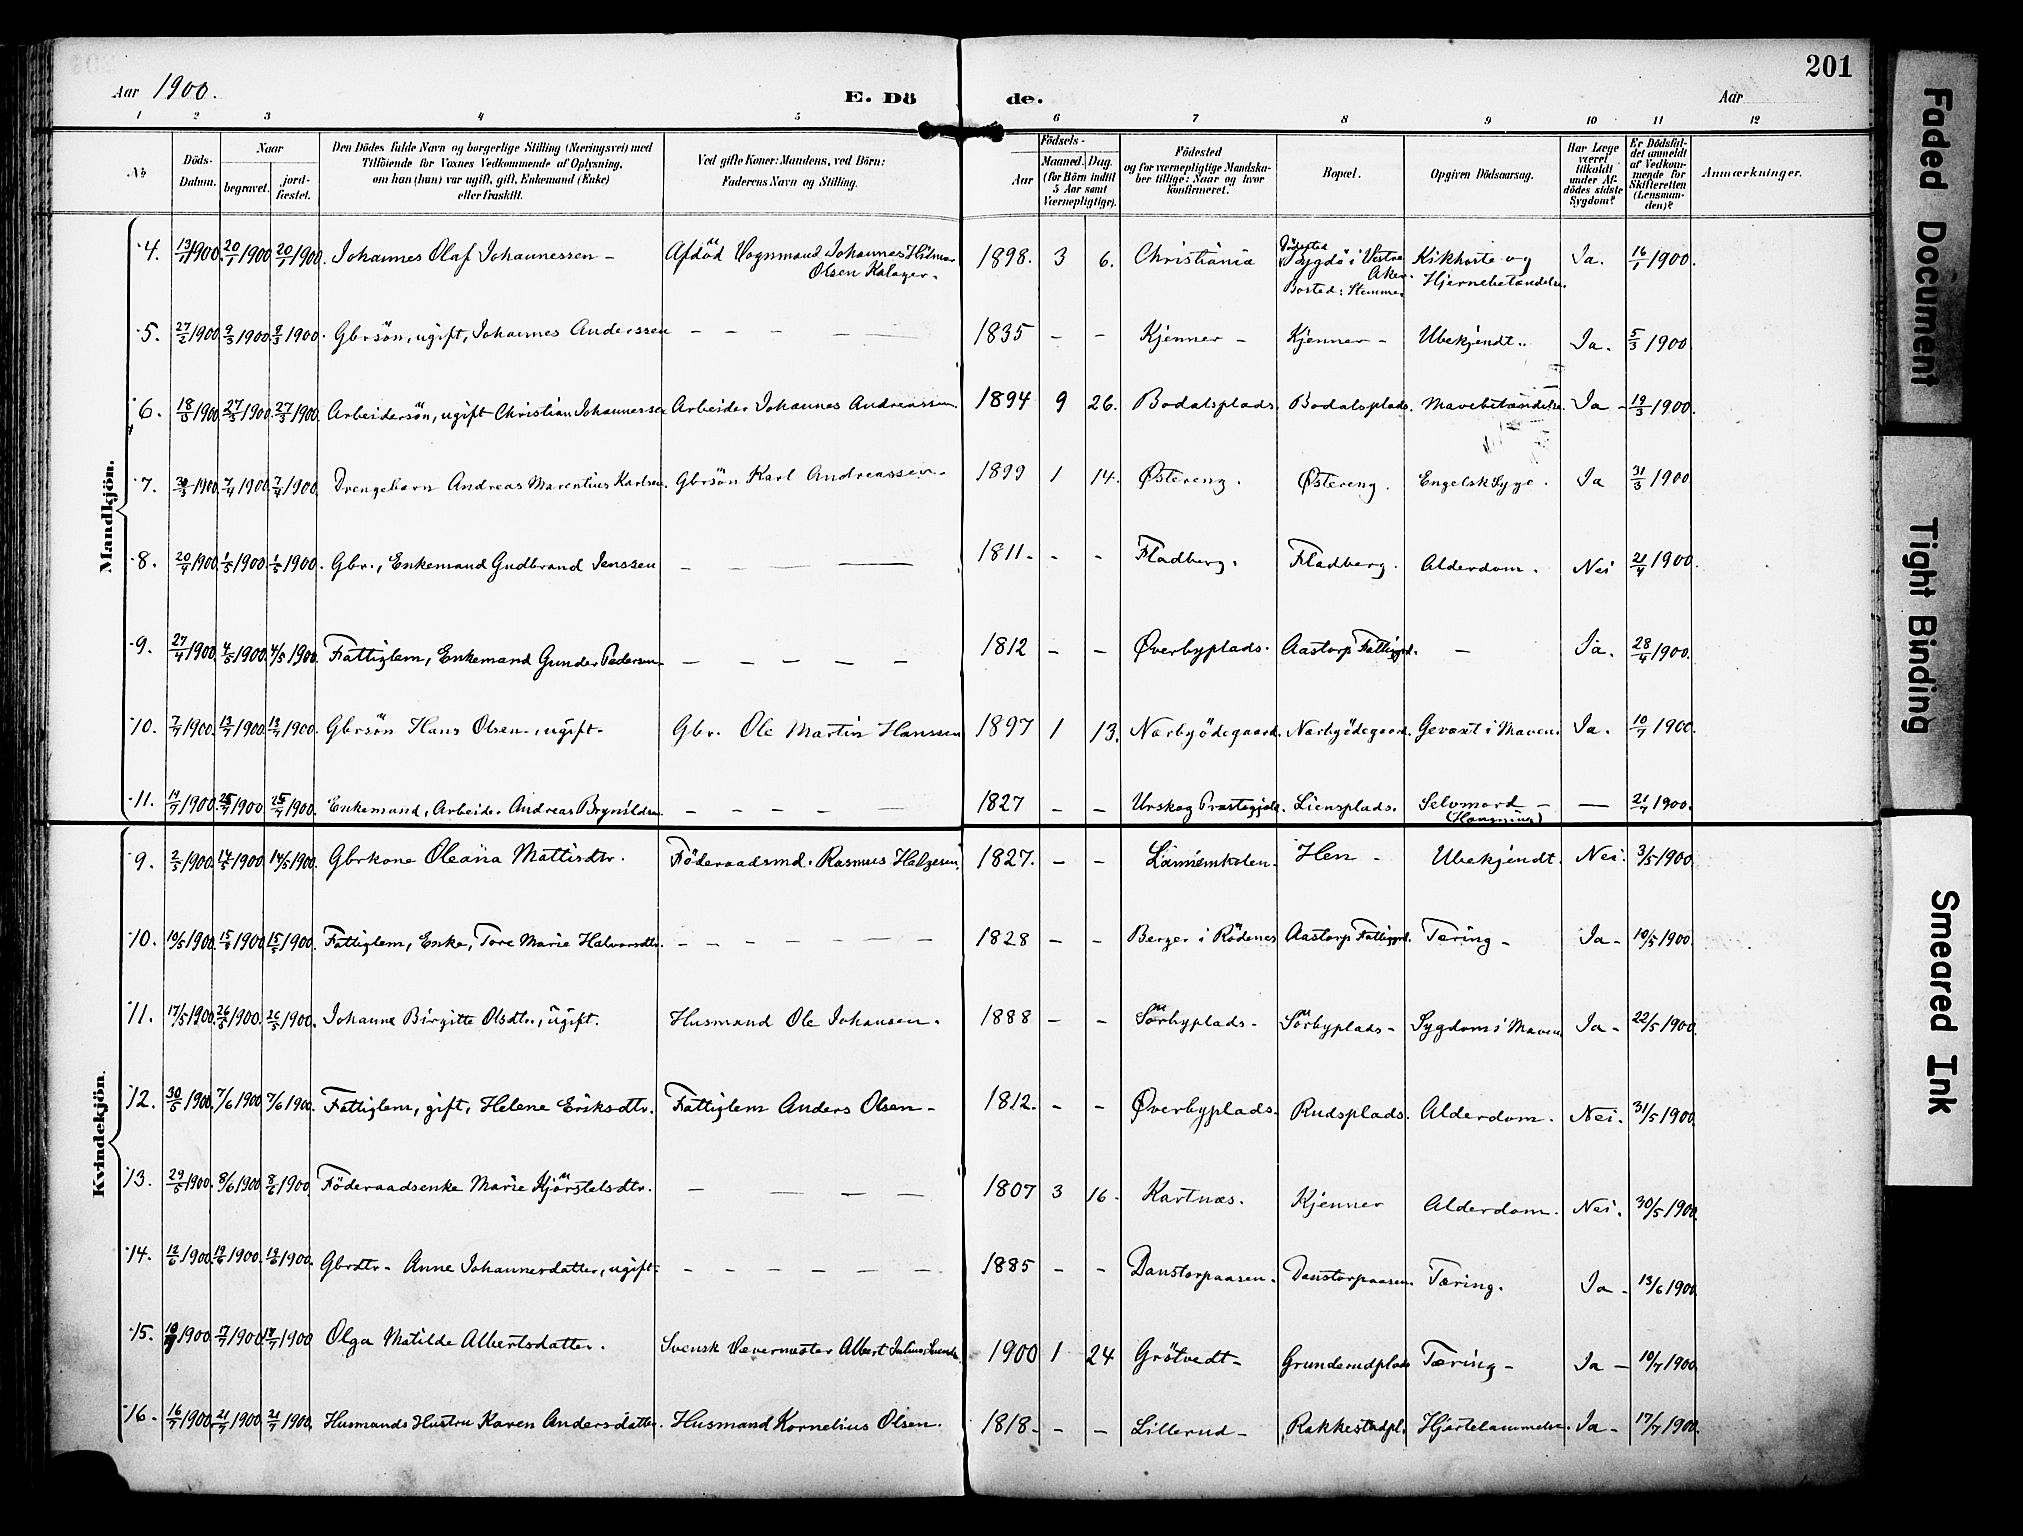 201
Aar 1900.
E. Dö de.
Aar
1 2 3 4 5 6 7 8 9 10 11 12
No
Döds-Datum.
Naar
begravet.
jord-fæstet.
Den Dödes fulde Navn og borgerlige Stilling (Næringsvei) med
Tilföiende for Voxnes Vedkommende af Oplysning,
om han (hun) var ugift, gift, Enkemand (Enke)
eller fraskilt.
Ved gifte Koner: Mandens, ved Börn:
Faderens Navn og Stilling.
Födsels-
Aar
Maaned. Dag.
(for Börn indtil
5 Aar samt
Værnepligtige).
Födested
og for værnepligtige Mandska-
ber tillige: Naar og hvor
konfirmeret.
Bopæl.
Opgiven Dödsaarsag.
Har Læge
været
tilkaldt
under Af-
dödes sidste
Sygdom?
Er Dödsfal-
det anmeldt
af Vedkom-
mende for
Skifteretten
(Lensman-
den)?
Anmærkninger.
Mandkjön.
4. 13/1 1900. 20/1 1900. 20/1 1900. Johannes Olaf Johannessen - Afdöd Vognmand Johannes Hilmar Olsen Kalager. 1898. 3 6. Christiania Dödssted Bygdö i Vestre Aker. Bosted: Stemme Kikhoste og Hjernebetændelse. Ja. 16/1 1900.
5. 27/2 1900. 9/3 1900. 9/3 1900. Gbrsön, ugift, Johannes Anderssen — — — — 1835 – – Kjenner – Kjenner – Ubekjendt. Ja. 5/3 1900.
6. 18/3 1900. 27/3 1900. 27/3 1900. Arbeidersön, ugift Christian Johannessen Arbeider Johannes Andreassen. 1894 9 26. Bodalsplads. Bodalsplads. Mavebetændelse. Ja – 19/3 1900.
7. 30/3 1900. 7/4 1900. 7/4 1900. Drengebarn Andreas Marentius Karlsen. Gbrsön Karl Andreassen. 1899 1 14. Østereng. Østereng. Engelsk Syge. Ja 31/3 1900.
8. 20/4 1900. 1/5 1900. 1/5 1900. Gbr., Enkemand Gudbrand Jenssen — — — — 1811. – – Fladberg. Fladberg. Alderdom. Nei 21/4 1900.
9. 27/4 1900. 4/5 1900. 4/5 1900. Fattiglem, Enkemand Gunder Pedersen — — — — — 1812 – – Øverbyplads. Aastorp Fattiggrd. – Ja. 28/4 1900.
10. 7/7 1900. 13/7 1900. 13/7 1900. Gbrsön Hans Olsen, ugift. Gbr. Ole Martin Hanssen 1897 1 13. Nærbyödegaard. Nærbyödegaard. Gevæxt i Maven. Ja. 10/7 1900.
11. 19/7 1900. 25/7 1900 25/7 1900. Enkemand, Arbeider Andreas Brynildsen — — — — 1827 – – Urskog Præstegjeld. Liensplads. Selvmord (Hængning) — — 21/7 1900.
Kvindekjön.
9. 2/5 1900. 14/5 1900. 14/5 1900. Gbrkone Oleana Mattisdtr. Föderaadsmd. Rasmus Helgesen 1827. – – Hen – Ubekjendt. Nei. 3/5 1900.
10. 10/5 1900. 15/5 1900. 15/5 1900. Fattiglem, Enke, Tore Marie Halvorsdtr. — — — — — — 1828 – – Berger i Rödenes Aastorp Fattiggrd. Tæring – Ja – 10/5 1900.
11. 17/5 1900. 26/5 1900. 26/5 1900. Johanne Birgitte Olsdtr., ugift. Husmand Ole Johansen. 1888 – – Sörbyplads – Sörbyplads – Sygdom i Maven. Ja – 22/5 1900.
12. 30/5 1900. 7/6 1900 7/6 1900. Fattiglem, gift, Helene Eriksdtr. Fattiglem Anders Olsen – 1812. – – Øverbyplads. Rudsplads. Alderdom. Nei. 31/5 1900.
13. 29/5 1900. 8/6 1900 8/6 1900. Föderaadsenke Marie Kjörstelsdtr. — — — — 1807 3 16. Kartnæs. Kjenner Alderdom. Nei. 30/5 1900.
14. 12/6 1900. 19/6 1900. 19/6 1900. Gbrdtr – Anne Johannesdatter, ugift – — — — — — — 1885 – – Danstorpaasen. Danstorpaasen. Tæring. Ja – 13/6 1900.
15. 10/7 1900. 17/7 1900 17/7 1900 Olga Matilde Albertsdatter. Svensk Vævermester Albert Julius 1900 1 24 Grötvedt – Grunderudplads Tæring – Ja – 10/7 1900.
16. 16/7 1900. 21/7 1900. 21/7 1900. Husmands Hustru Karen Andersdatter. Husmand Kornelius Olsen. 1818 – – – Lillerud – Rakkestadpl. Hjertelammelse. Ja – 17/7 1900.
Faded Document
Tight Binding
Smeared Ink